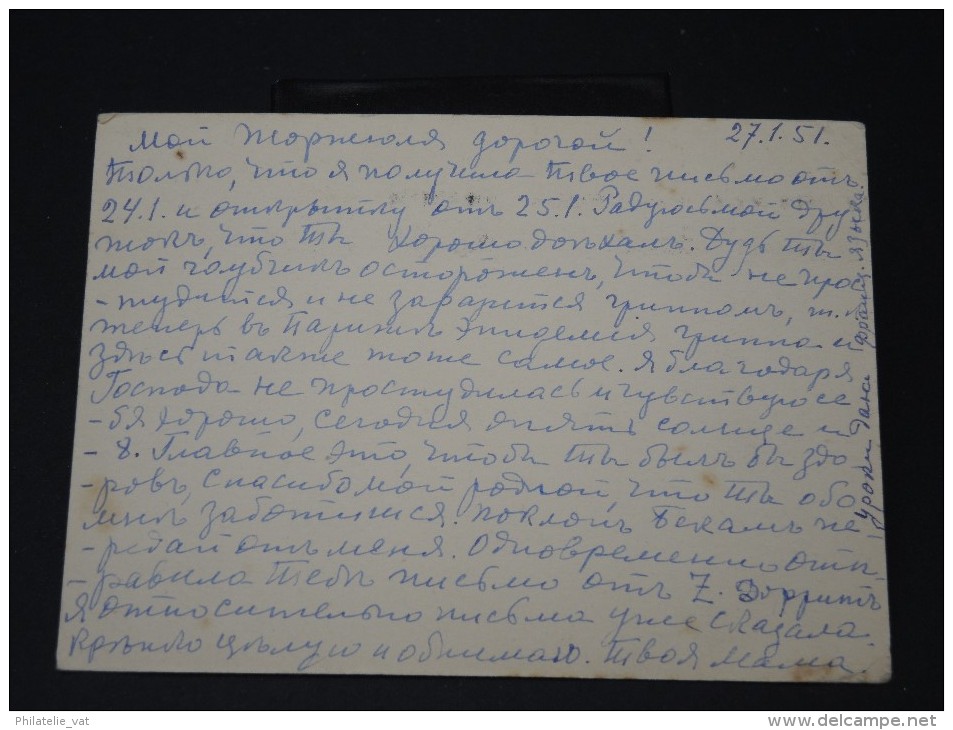 27.1.51.
Мой Жоржюля дорогой!
Только, что я получила твое письмо отъ
24.1. и открытку отъ 25.1. Радуюсь мой дру
жокъ, что ты хорошо доѣхалъ. Будь ты
мой голубчикъ остороженъ, чтобы не прос
-тудится и не заразится гриппомъ, т.к.
теперь въ Парижѣ эпидемія гриппа и
здѣсь также тоже самое. Я благодаря
Господа не простудилась и чувствую се
-бя хорошо, сегодня опять солнце и
- 8. Главное это, чтобы ты былъ бы здо
-ровъ, спасибо мой родной, что ты обо
мнѣ заботишся. Поклонъ Бекамъ пе
-редай отъ меня. Одновременно отп-
-равила тебѣ письмо отъ Z. Дорритъ
я относительно письма уже сказала.
Крѣпко цѣлую и обнимаю. Твоя Мама.
уроки франц. языка.
Philatelie_vat
http://www.delcampe.net